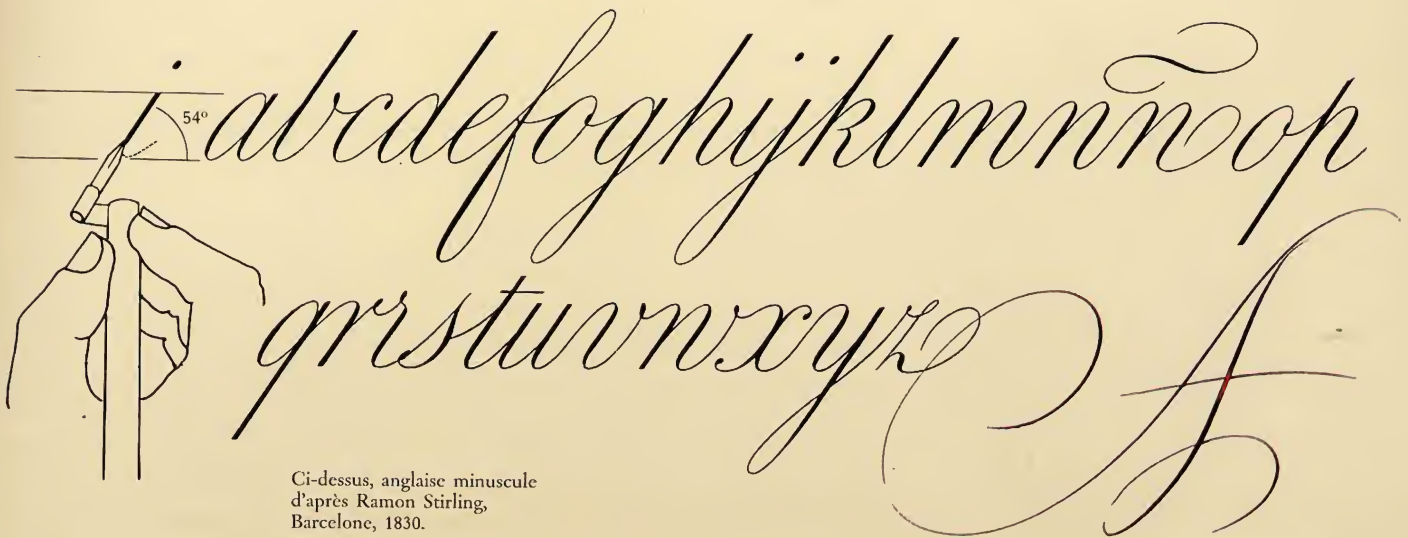 i 54° abcdefoghijklmnñop
qrrstuvwxyz A
Ci-dessus, anglaise minuscule
d'après Ramon Stirling,
Barcelone, 1830.